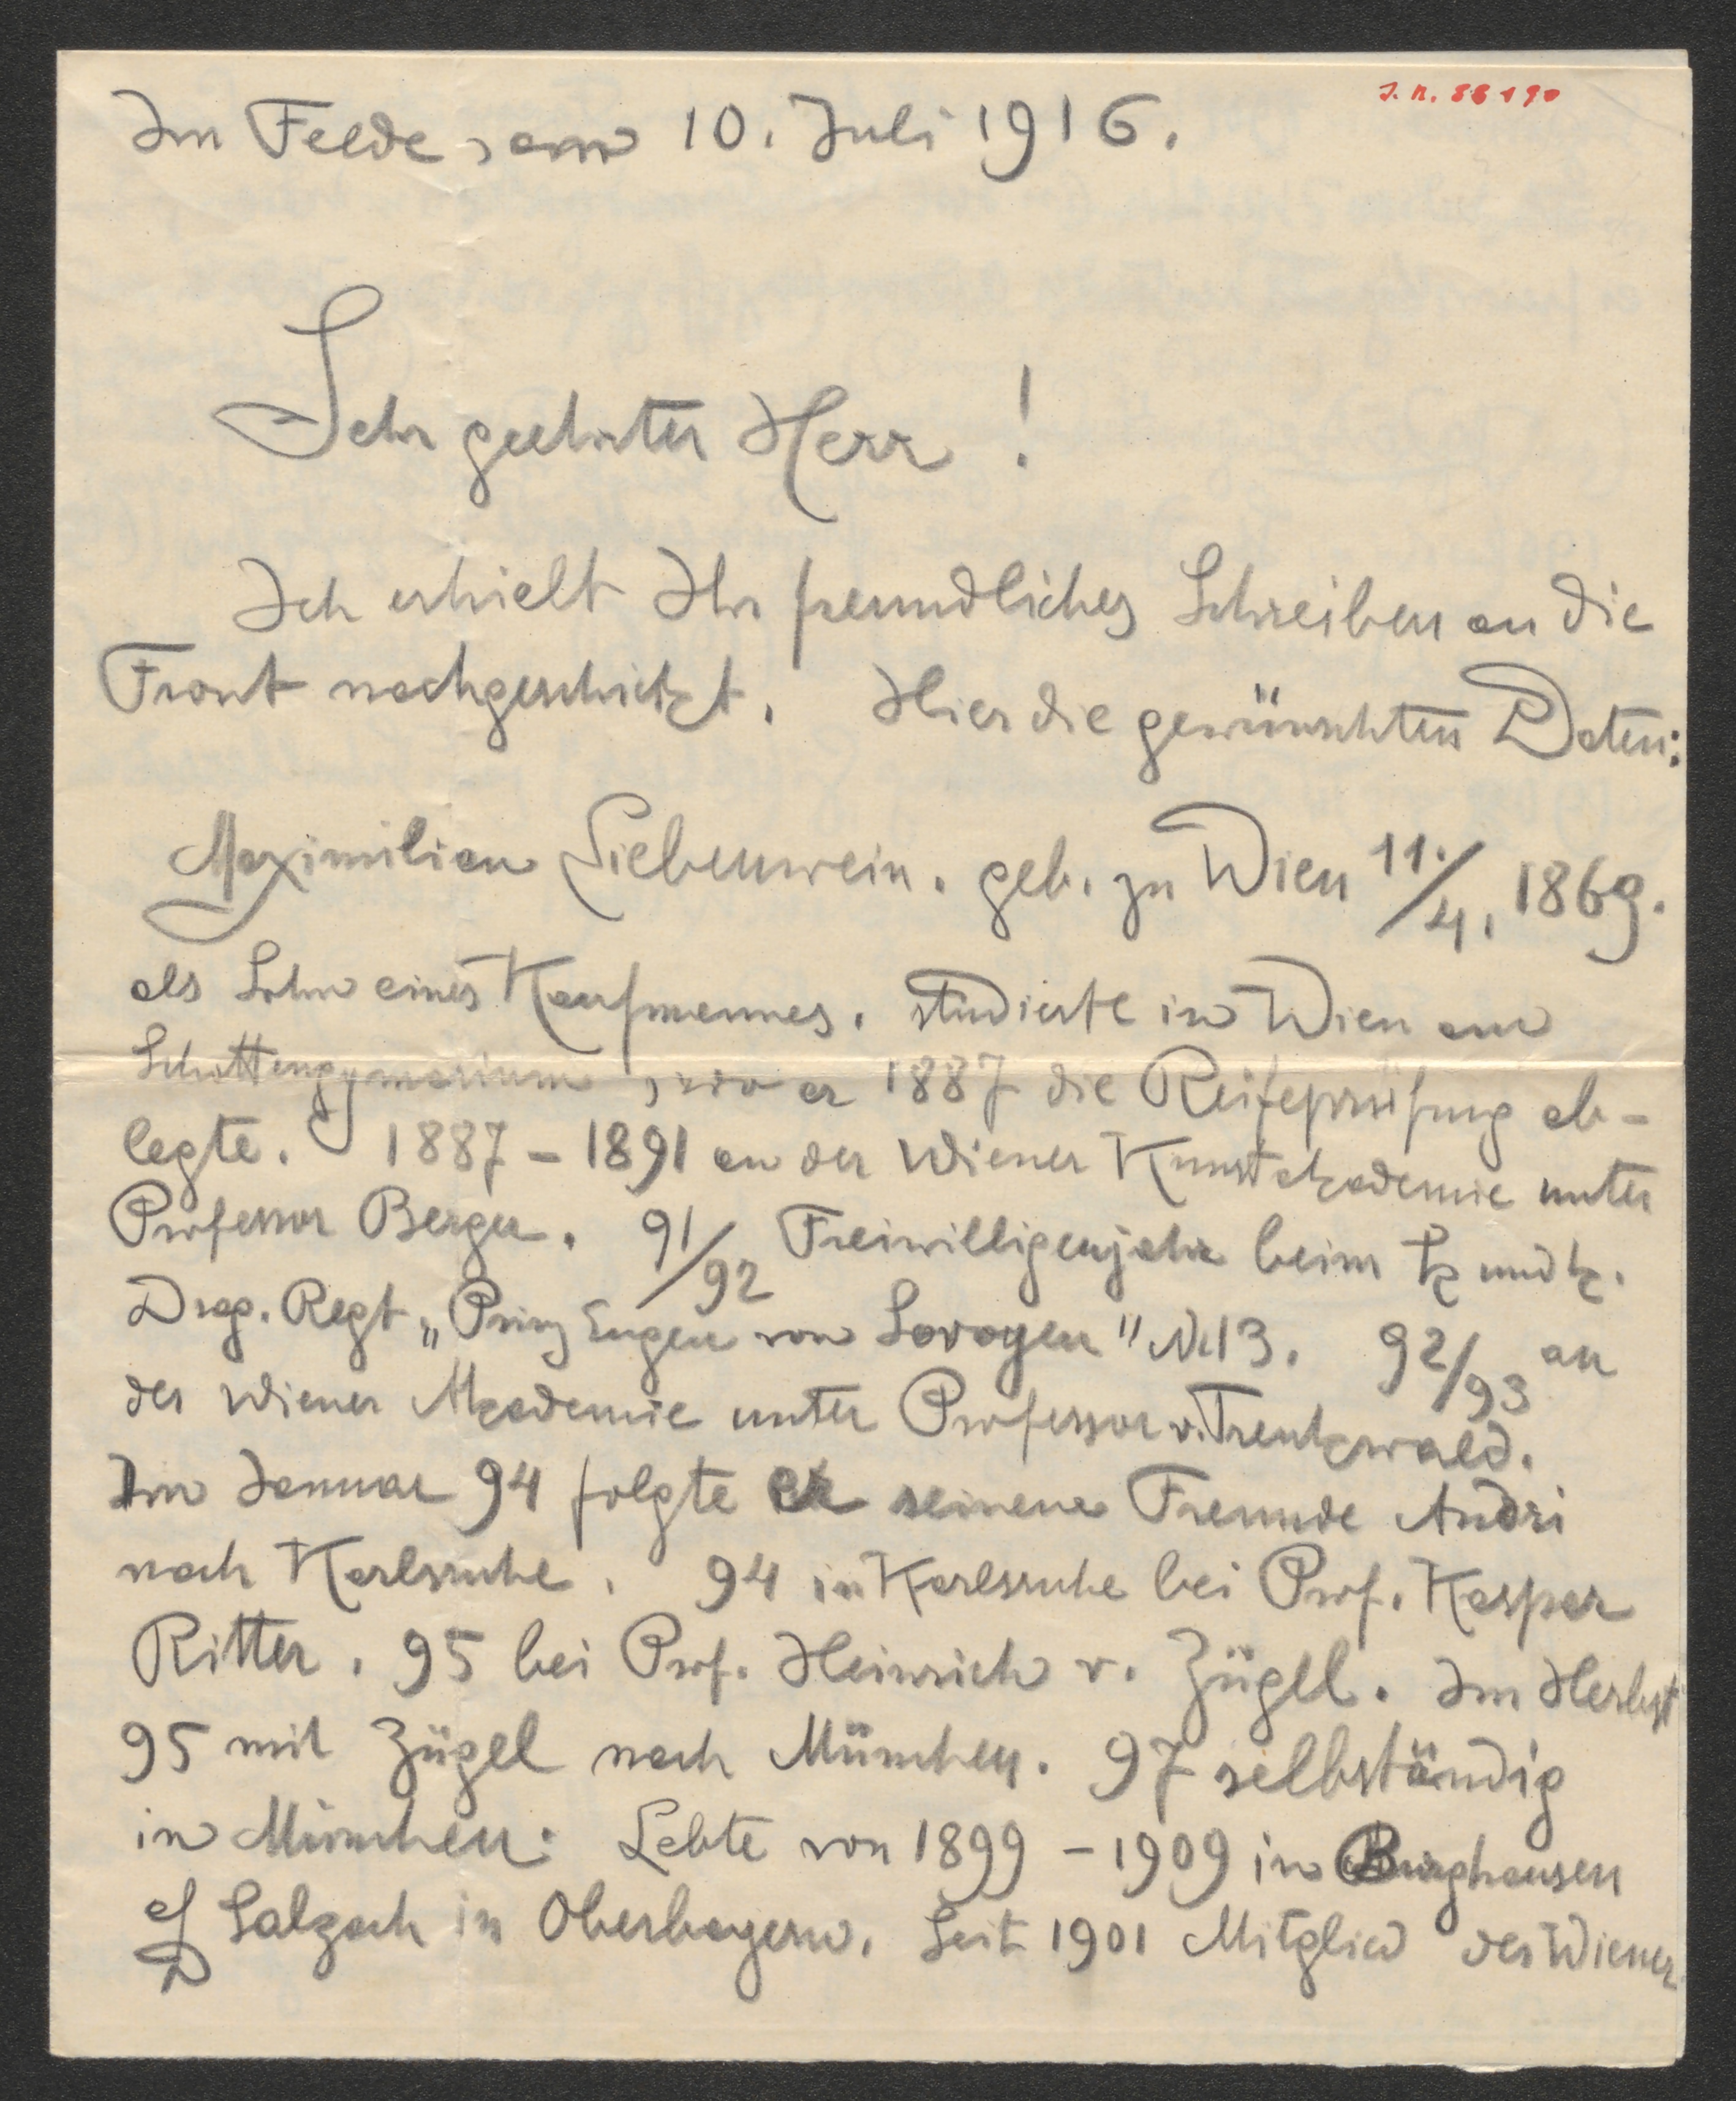 J. N. 86190
Im Felde, am 10. Juli 1916.
Sehr geehrter Herr!
Ich erhielt Ihr freundliches Schreiben an die
Front nachgeschickt. Hier die gewünschten Daten:
Maximilian Liebenwein. geb. zu Wien 11./4. 1869.
als Sohn eines Kaufmannes. studierte in Wien am
Schottengymnasium, wo er 1887 die Reifeprüfung ab-
legte. 1887 – 1891 an der Wiener Kunstakademie unter
Professor Berger. 91/92 Freiwilligenjahr beim k. und k.
Drag. Regt „Prinz Eugen von Savoyen" Nr 13. 92/93 an
der Wiener Akademie unter Professor v. Trenkwald.
Im Januar 94 folgte er seinem Freunde Andri
nach Karlsruhe. 94 in Karlsruhe bei Prof. Kaspar
Ritter. 95 bei Prof. Heinrich v. Zügel. Im Herbst
95 mit Zügel nach München. 97 selbständig
in München. Lebte von 1899 – 1909 in Burghausen
a/ Salzach in Oberbayern. Seit 1901 Mitglied der Wiener